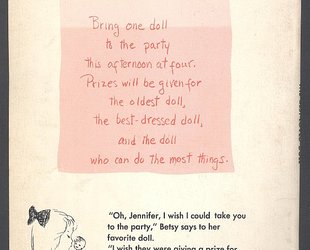 Bring one doll
to the party
this afternoon at four.
Prizes will be given for
the oldest doll,
the best-dressed doll,
and the doll
who can do the most things.
"Oh, Jennifer, I wish I could take you
to the party," Betsy says to her
favorite doll.
"I wish they were giving a prize for